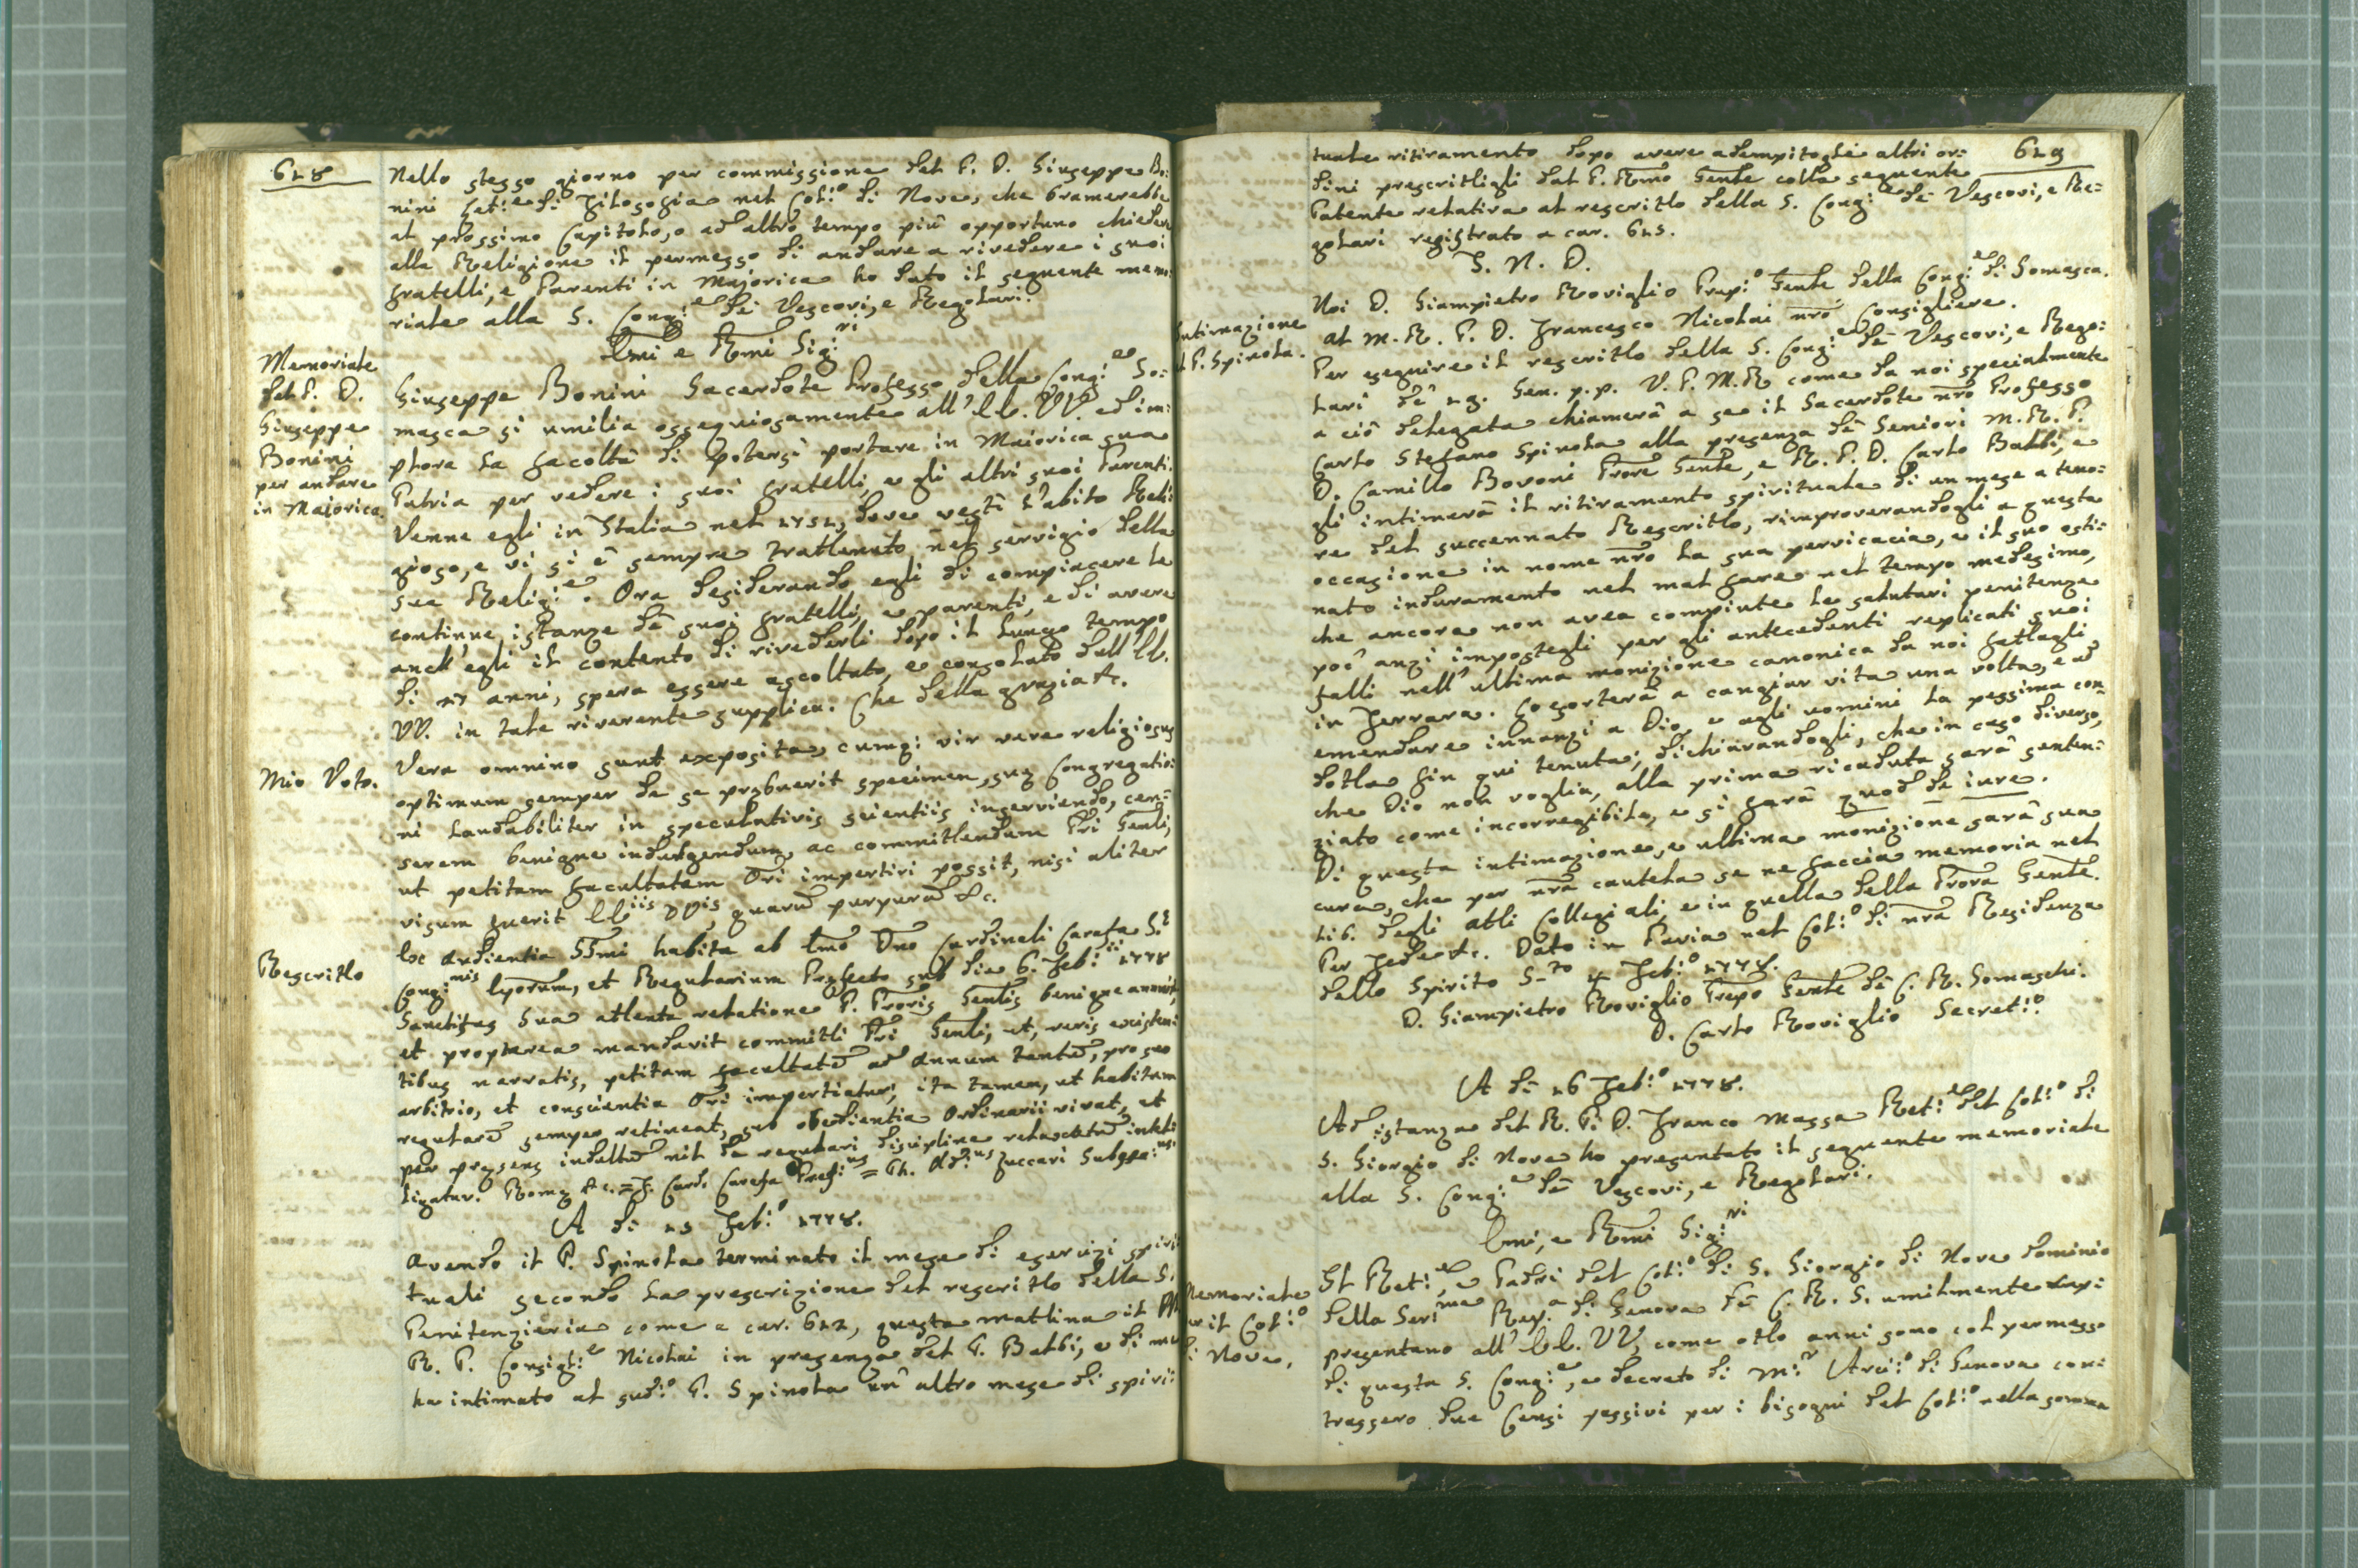 618
Nello stesso giorno per commissione del P. D. Giuseppe Bo:
nini Let:e di Filosofia nel Col:o di Nove, che bramerebbe
al prossimo Capitolo, o ad altro tempo più opportuno chiedere
alla Religione il permesso di andare a rivedere i suoi
fratelli, e Parenti in Majorica ho dato il seguente memo:
riale alla S. Cong:e de' Vescovi, e Regolari.
Emi e Rmi Sig:ri
Memoriale
del P. D.
Giuseppe
Bonini
per andare
in Maiorica.
Giuseppe Bonini Sacerdote Professo della Cong:e So:
masca si umilia ossequiosamente all' EE. VV. ed im:
plora la facoltà di potersi portare in Maiorica sua
Patria per vedere i suoi fratelli, e gli altri suoi Parenti.
Venne egli in Italia nel 1751, dove vestì l'abito Reli:
gioso, e vi si è sempre trattenuto nel servigio della
sua Relig:e. Ora desiderando egli di compiacere le
continue istanze de' suoi fratelli, e parenti, e di avere
anch'egli il contento di rivederli dopo il lungo tempo
di 27 anni, spera essere ascoltato, e consolato dall' EE.
VV. in tale riverente supplica. Che della grazia &c.
Mio Voto.
Vera omnino sunt exposita, cumq; vir vere religiosus
optimum semper de se prębuerit specimen, suę Congregatio:
ni laudabiliter in speculativis scientiis inserviendo, cen:
serem benigne indulgendum, ac committendum Pri Gentli,
ut petitam facultatem Ori impertiri possit, nisi aliter
visum fuerit EEiis VVis quarũ purpurã &c.
Rescritto
Ex Audientia SSmi habita ab Emo Dno Cardinali Carafa S.ę
Cong:nis Eporum, et Regularium Pręfecto sub die 6. Feb:ii 1778
Sanctitas Sua attenta relatione P. Proris Gentlis benigne annuit,
et propterea mandavit committi Pri Gentli, ut, veris existen:
tibus narratis, petitam facultatẽ ad annum tantũ, pro suo
arbitrio, et conscientia Ori impertiatur, ita tamen, ut habitum
regularẽ semper retineat, sub obedientia Ordinarii vivat, et
per pręsens indultũ nil de regulari disciplina relaxatũ intelli:
ligatur. Romę &c. = F. Card. Carafa Pręf:us = Th. Ad:us Zuccari Subsec:us.
A dì 15 Feb:o 1778.
Avendo il P. Spinola terminato il mese di esercizi spiri:
tuali secondo la prescrizione del rescritto della S.
Penitenzieria come a car. 612, questa mattina il M.
R. P. Consigl:e Nicolai in presenza del P. Balbi, e di me
ha intimato al sud:o P. Spinola un' altro mese di spiri:
619
tuale ritiramento dopo avere adempito gli altri or:
dini prescrittigli dal P. Rmo Gentle colla seguente
Patente relativa al rescritto della S. Cong:e de' Vescovi, e Re:
golari registrato a car. 615.
I. N. D.
Intimazione
al P. Spinola.
Noi D. Giampietro Roviglio Prep:o Gentle della Cong:e di Somasca.
Al M. R. P. D. Francesco Nicolai nro Consigliere.
Per eseguire il rescritto della S. Cong:e de' Vescovi, e Rego:
lari de' 19. Gen. p.p. V. P. M. R. come da noi specialmente
a ciò delegata chiamerà a se il Sacerdote nro Professo
Carlo Stefano Spinola alla presenza de' Seniori M. R. P.
D. Camillo Bovoni Prore Gentle, e R. P. D. Carlo Balbi, e
gli intimerà il ritiramento spirituale di un mese a teno:
re del succennato Rescritto, rimproverandogli a questa
occasione in nome nro la sua pervicacia, e il suo osti:
nato induramento nel mal fare nel tempo medesimo,
che ancora non avea compiute le salutari penitenze
poc' anzi impostegli per gli antecedenti replicati suoi
falli nell' ultima monizione canonica da noi fattagli
in Ferrara. Lo esorterà a cangiar vita una volta, e ad
emendare innanzi a Dio, e agli uomini la pessima con:
dotta fin qui tenuta; dichiarandogli, che in caso diverso,
che Dio non voglia, alla prima ricaduta sarà senten:
ziato come incorregibile, e si farà quod de iure.
Di questa intimazione, e ultima monizione sarà sua
cura, che per nra cautela se ne faccia memoria nel
lib. degli atti Collegiali, e in quella della Prora Gentle.
Per Fede &c. Dato in Pavia nel Col:o di nra Residenza
dello Spirito S.to 4 Feb:o 1778.
D. Giampietro Roviglio Prepo Gentle de' C. R. Somaschi.
D. Carlo Roviglio Secret:o
A dì 16 Feb:o 1778.
Ad istanza del R. P. D. Franco Massa Ret:e del Col:o di
S. Giorgio di Nove ho presentato il seguente memoriale
alla S. Cong:e de' Vescovi, e Regolari.
Emi, e Rmi Sig:ri
Memoriale
per il Col:o
di Nove.
Il Ret:e, e Padri del Col:o di S. Giorgio di Nove dominio
della Ser:ma Rep.a di Genova de' C. R. S. umilmente rapi
presentano all' EE. VV. come otto anni sono col permesso
di questa S. Cong:e, e decreto di M:r Arciv:o di Genova con:
trassero due Censi passivi per i bisogni del Col:o nella somma